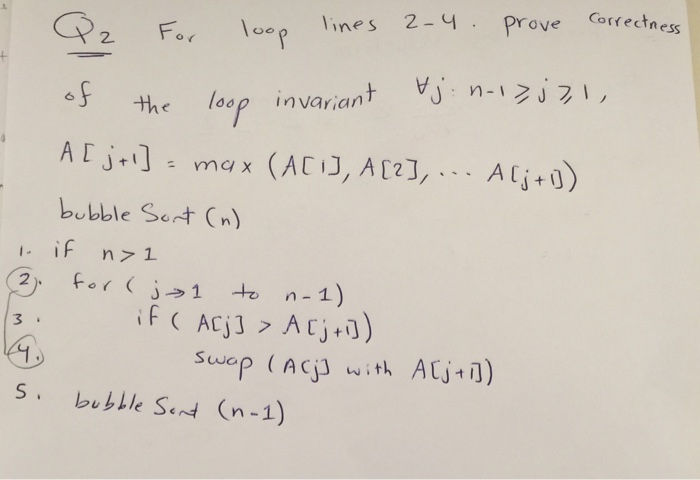 Q2 For loop lines 2-4. prove correctness
of the loop invariant ∀j: n-1 ⩾ j ⩾ 1,
A[j+1] = max (A[1], A[2], ... A[j+1])
bubble Sort (n)
1. if n > 1
2. for ( j → 1 to n-1)
3. if ( A[j] > A[j+1])
4. swap (A[j] with A[j+1])
5. bubble Sort (n-1)